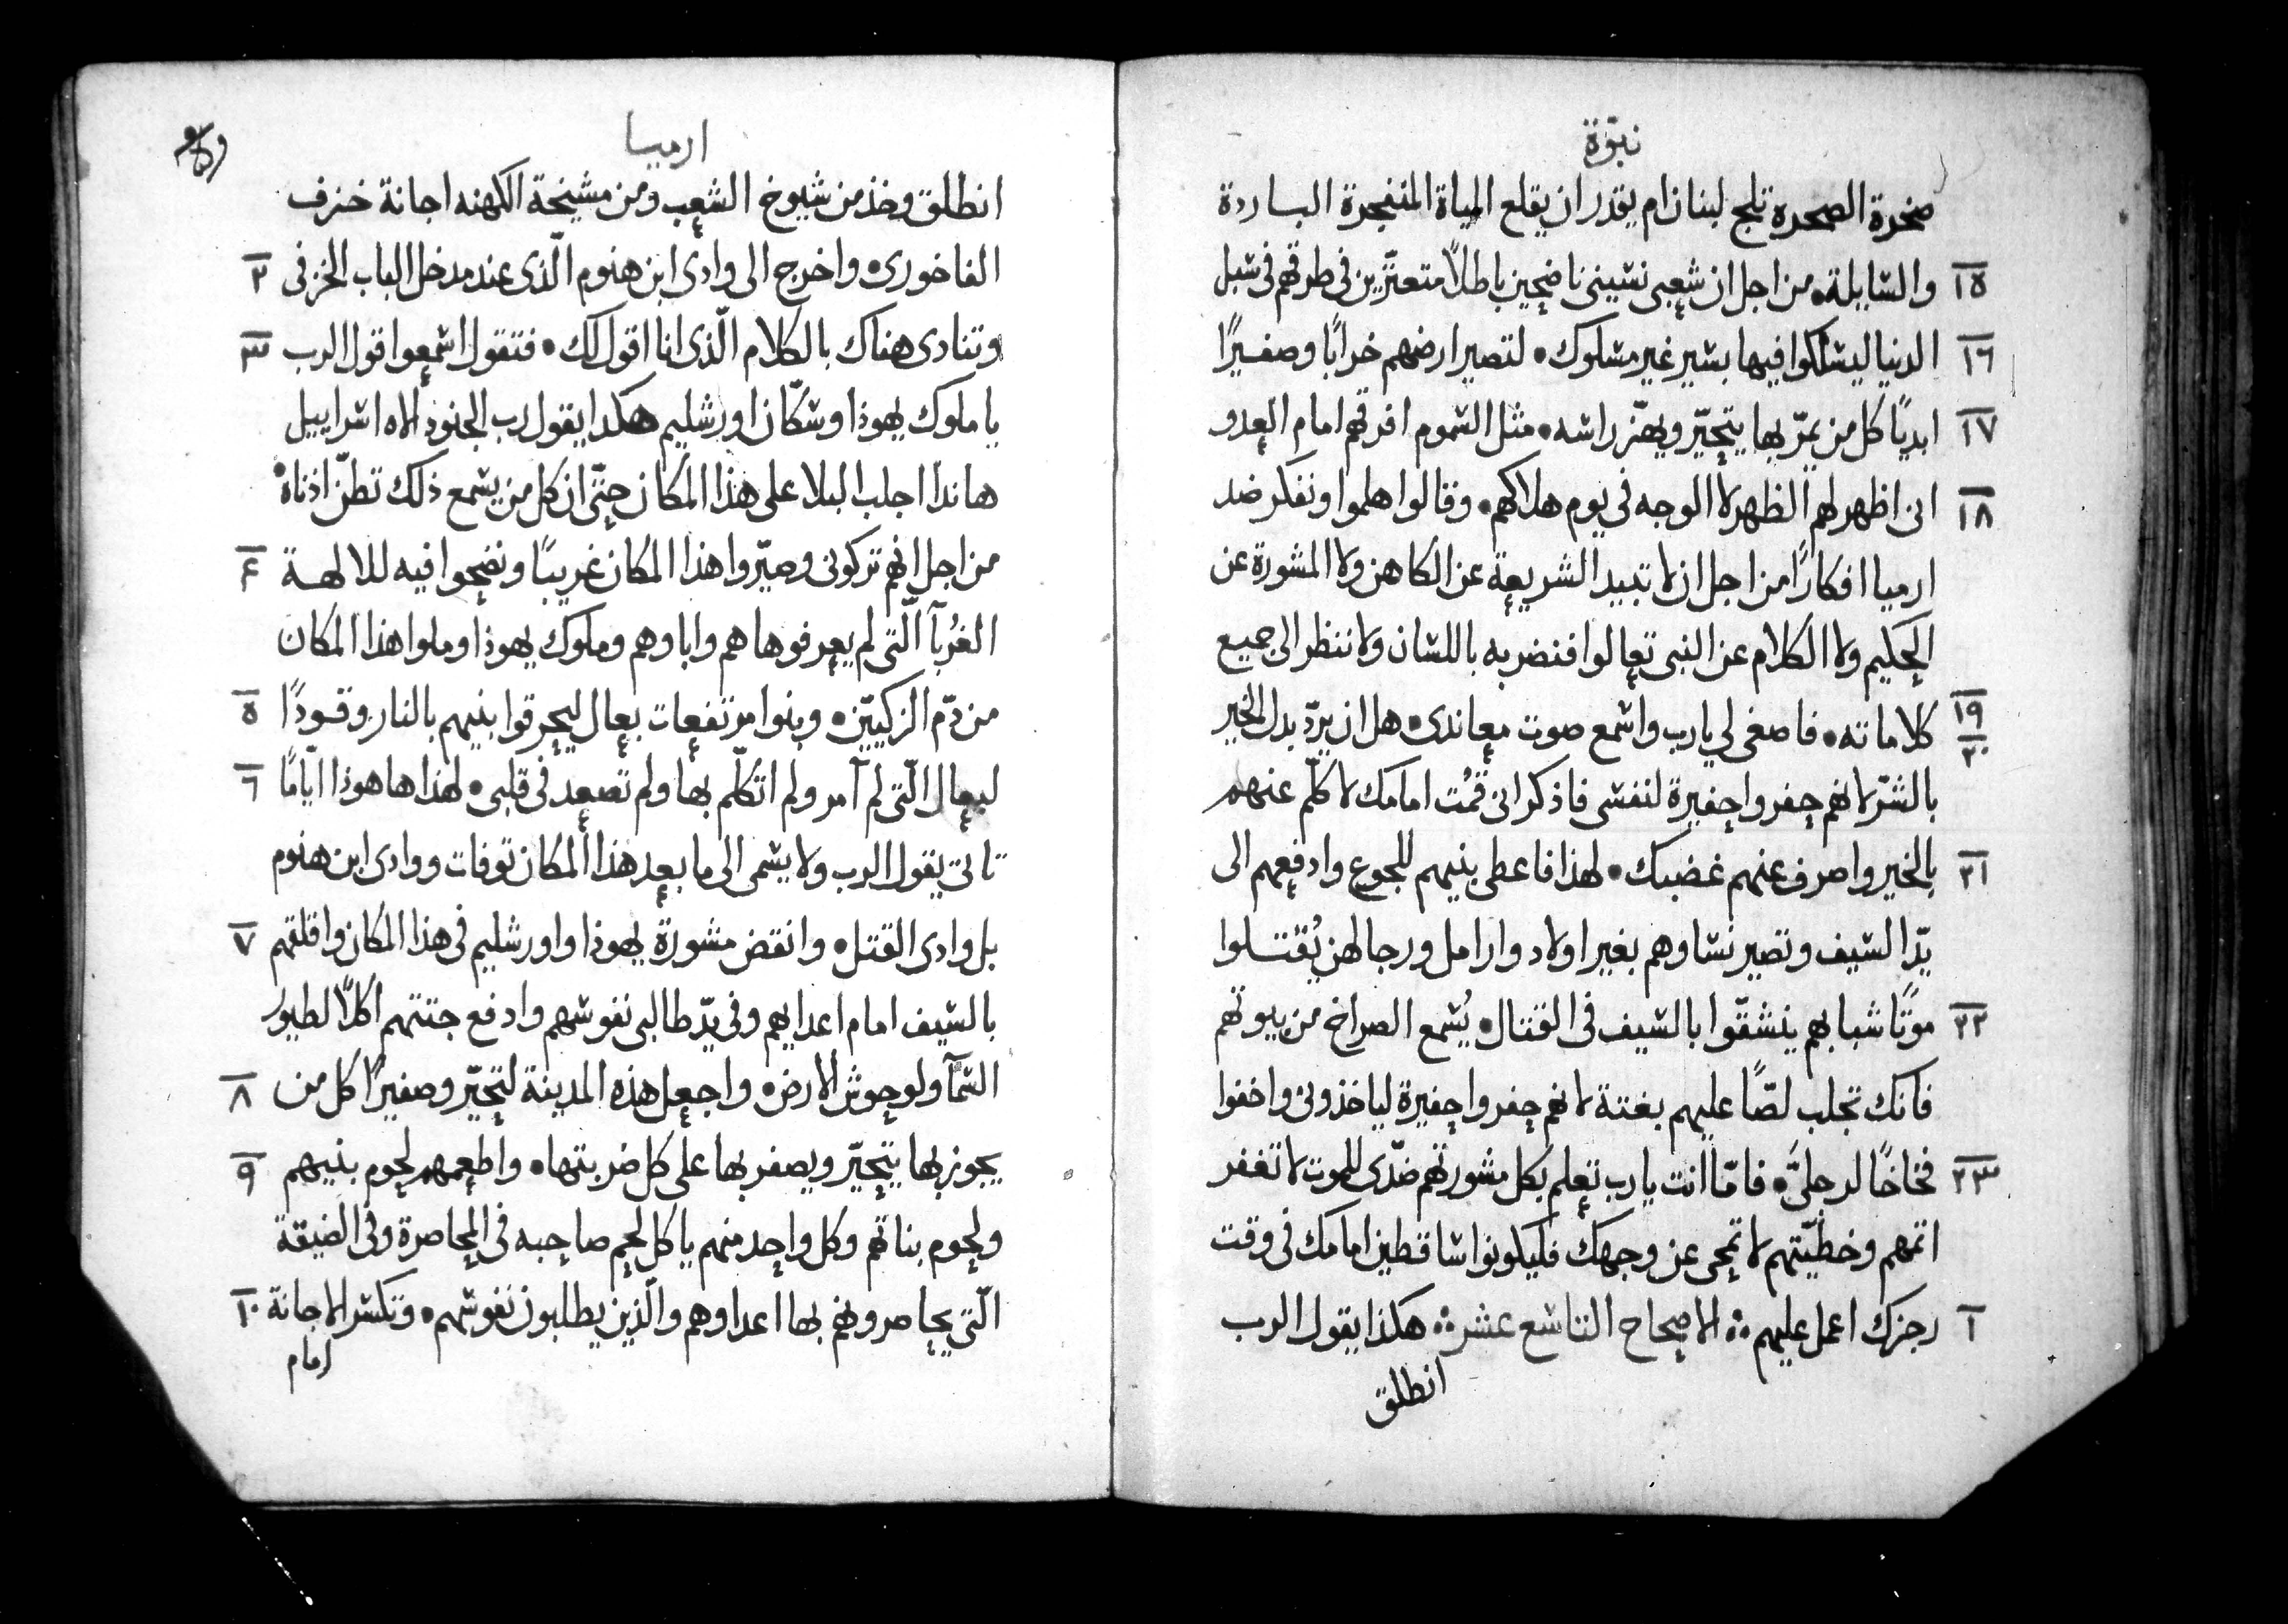 نبوّة
صخرة الصحره تلج لبنان ام يقدر ان يقلع المياة المنفجرة الباردة
١٥ والسايلة۰ من اجل ان شعبى نسيني ناضحين باطلًا متعثّرين فى طرقهم فى سبل
١٦ الدنيا ليسلكوا فيها بسير غير مسلوك۰ لتصير ارضهم خرابًا وصفيرًا
١٧ ابديًا كل من يمرّ بها يتحيّر ويهزّ راسه۰ مثل السموم افرقهم امام العدو
١٨ انى اظهر لهم الظهر لا الوجه فى يوم هلاكهم۰ وقالوا هلموا ونفكر ضد
ارميا افكارًا من اجل ان لا تبيد الشريعة عن الكاهن ولا المشورة عن
الحكيم ولا الكلام عن النبى تعالوا فنضربه باللسان ولا ننظر الى جميع
١٩ ٢٠ كلاماته۰ فاصغى لي يارب واسمع صوت معاندى۰ هل ان يردّ بدل الخير
بالشرّ لانهم حفروا حفيرة لنفسى فاذكر انى قمُت امامك لاكلّم عنهم
٢١ بالخير واصرف عنهم غضبك۰ لهذا فاعطى بنيهم للجوع وادفعهم الى
يدّ السيف وتصير نساوهم بغير اولاد وارامل ورجالهن يُقتلوا
٢٢ موتًا شبابهم ينشقّوا بالسيف فى القتال۰ يُسمع الصراخ من بيوتهم
فانك تجلب لصّا عليهم بغتة لانهم حفروا حفيرة لياخذونى واخفوا
٢٣ فخاخًا لرجليَّ۰ فامّا انت يارب تعلم بكل مشورتهم ضدّى للموت لا تغفر
اثمهم وخطيّتهم لا تمحى عن وجهك فليكونوا ساقطين امامك فى وقت
١ رجزك اعمل عليهم ۰: الاصحاح التاسع عشر ۰: هكذا يقول الرب
انطلق
ارميا
انطلق وخذ من شيوخ الشعب ومن مشيخة الكهنه اجانة خزف
٢ الفاخورى۰ واخرج الى وادى ابن هنوم الّذى عند مدخل الباب الخزفى
٣ وتنادى هناك بالكلام الّذى انا اقول لك۰ فتقول اسمعوا قول الرب
يا ملوك يهوذا وسكّان اورشليم هكدا يقول رب الجنود الاه اسراييل
هاندا اجلب البلا على هذا المكان حتّى ان كل من يسمع ذلك تطنّ اذناه۰
٤ من اجل انهم تركونى وصيّروا هذا المكان غريبًا ونضحوا فيه للالهة
الغُربآ الّتى لم يعرفوها هم واباوهم وملوك يهوذا وملوا هذا المكان
٥ من دّم الزكييّن۰ وبنوا مرتفعات بعال ليحرقوا بنيهم بالنار وقودًا
٦ لبعال الّتى لم آمر ولم اتكلّم بها ولم تصعد فى قلبى۰ لهذا هاهوذا ايّامًا
تاتى يقول الرب ولا يسمى الى ما بعد هذا المكان توفات ووادى ابن هنوم
٧ بل وادى القتل۰ وانقض مشورة يهوذا واورشليم فى هذا المكان واقلقهم
بالسيف امام اعدايهم وفى يدّ طالبى نفوسهم وادفع جتتهم اكلًا لطيور
٨ السمآ ولوحوش الارض۰ واجعل هذه المدينة لتحيّر وصفيرًا كل من
٩ يجوز بها يتحيّر ويصفر بها على كل ضربتها۰ واطعمهم لحوم بنيهم
ولحوم بناتهم وكل واحد منهم ياكل لحم صاحبه فى المحاصرة وفى الضيقة
١٠ الّتى يحاصرونهم بها اعداوهم والّذين يطلبون نفوسهم۰ وتكسر الاجانة
امام